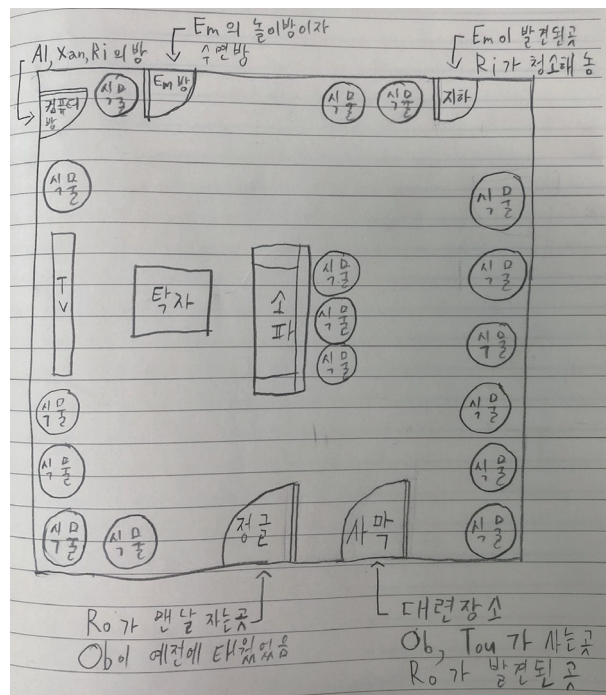 Em의 놀이방이자
수면방
Al, Xan, Ri의방
Em이 발견된곳
Ri가 청소해 놈
컴퓨터
방
식물
Em방
식물
식물
지하
식물
식물
TV
탁자
소
파
식물
식물
식물
식물
식물
식물
식물
식물
식물
식물
식물
식물
식물
정글
사막
Ro가 맨날 자는곳
Ob이 예전에 태웠었음
대련장소
Ob, Tou가 사는곳
Ro가 발견된 곳